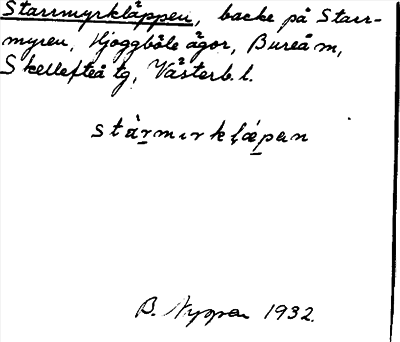 Starrmyrkläppen, backe på Starr-
myren, Hjoggböle ägor, Bureå m,
Skellefteå tg, Västerb. l.
stàr̲mırkl̥ǽp̲an
B. Nygren 1932.